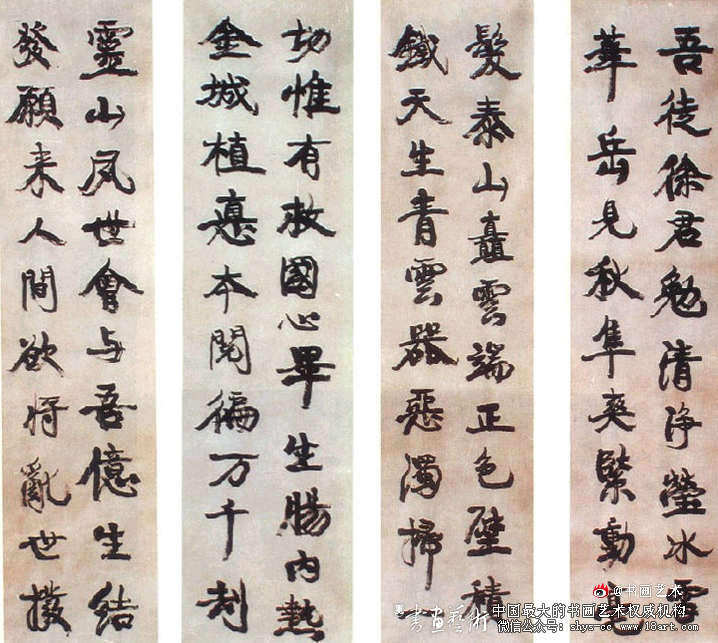 吾徒徐君勉清净瑩冰雪
華岳見秋隼爽緊動
髮泰山矗雲端正色壁積
鐵天生青雲器惡濁掃一
切惟有救國心畢生腸内熱
金城植惪本閱徧万千刧
靈山夙世會与吾憶生結
發願来人間欲将亂世撥
@书画艺术
書畫藝術
中国最大的书画艺术权威机构
微信公众号：shys-cc www.18art.com